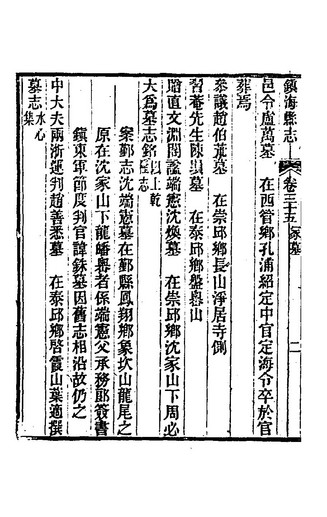 鎮海縣志　卷三十五冢墓　二
邑令盧萬墓　在西管鄉孔浦紹定中官定海令卒於官
葬焉
參議趙伯葟墓　在崇邱鄉長山淨居寺側
習菴先生陳塤墓　在泰邱鄉盤嶴山
贈直文淵閣諡端憲沈煥墓　在崇邱鄉沈家山下周必
大爲墓志銘以上乾隆志
案鄞志沈端憲墓在鄞縣鳳翔鄉象坎山龍尾之
原在沈家山下龍皤嶴者係端憲父承務郎簽書
鎮東軍節度判官諱銖墓因舊志相沿故仍之
中大夫兩浙運判趙善悉墓　在泰邱鄉啓霞山葉適撰
墓志水心集